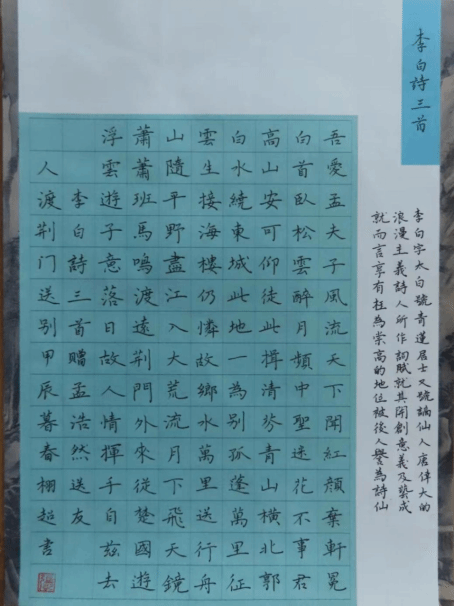 李白詩三首
李白字太白號青蓮居士又號謫仙人唐偉大的
浪漫主義詩人所作詞賦就其開創意義及藝成
就而言享有极為崇高的地位被後人譽為詩仙
吾愛孟夫子風流天下聞紅顏棄軒冕
白首臥松雲醉月頻中聖迷花不事君
高山安可仰徒此揖清芬青山橫北郭
白水繞東城此地一為別孤蓬萬里征
雲生接海樓仍憐故鄉水萬里送行舟
山隨平野盡江入大荒流月下飛天鏡
蕭蕭班馬鳴渡遠荆門外來從楚國遊
浮雲遊子意落日故人情揮手自茲去
李白詩三首贈孟浩然送友
人渡荆门送别甲辰暮春栩超書